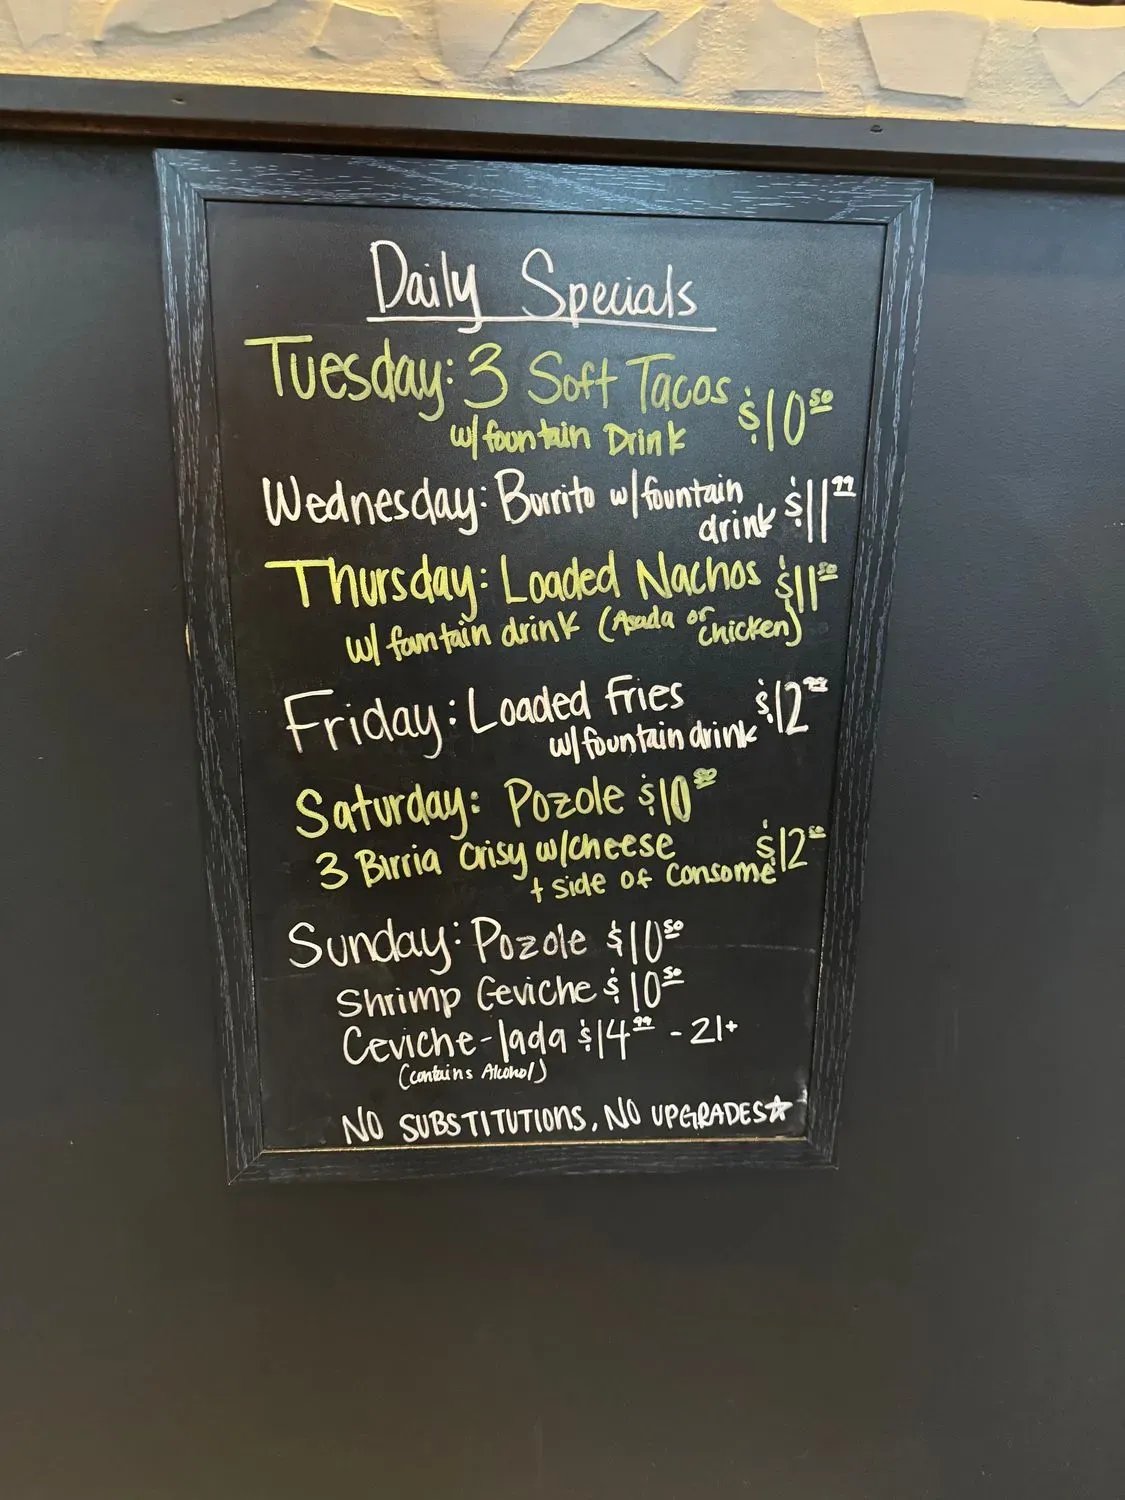 Daily Specials
Tuesday: 3 Soft Tacos $10.50
w/ fountain Drink
Wednesday: Burrito w/ fountain
drink $11.99
Thursday: Loaded Nachos $11.50
w/ fountain drink (Asada or chicken)
Friday: Loaded Fries $12.99
w/ fountain drink
Saturday: Pozole $10.50
3 Birria Crisy w/cheese $12.50
+ side of Consome
Sunday: Pozole $10.50
Shrimp Ceviche $10.50
Ceviche-lada $14.99 - 21+
(contains Alcohol)
NO SUBSTITUTIONS, NO UPGRADES☆